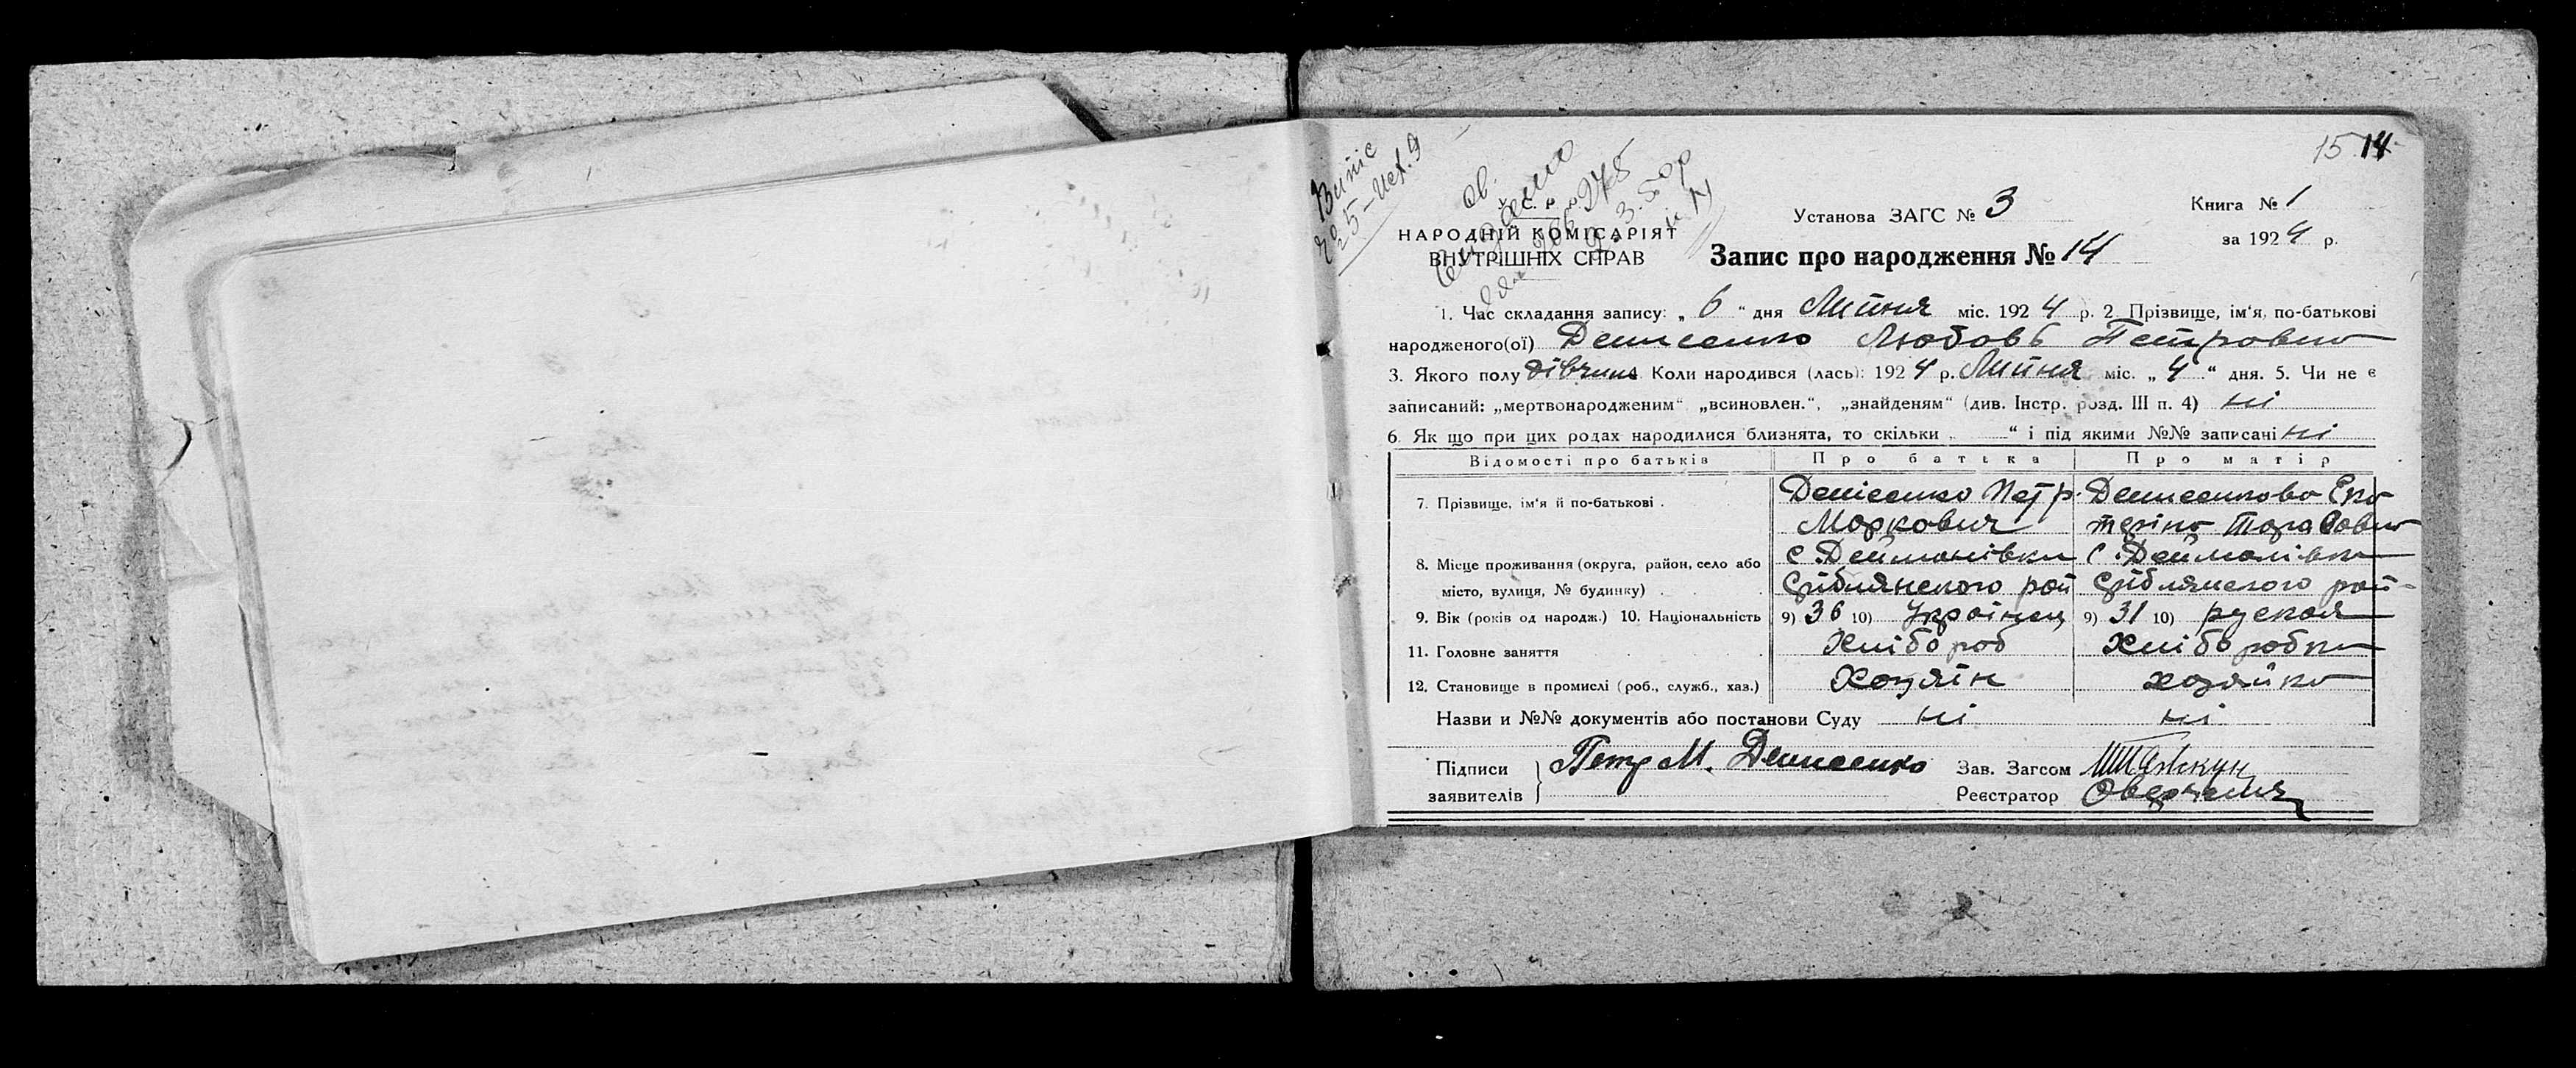 15 14
Випис
Ов.
У. С. Р. Р.
НАРОДНІЙ КОМІСАРІЯТ
ВНУТРІШНІХ СПРАВ
Установа ЗАГС № 3
Книга № 1
за 1924 р.
Запис про народження № 14
1. Час складання запису: „ 6 “ дня Липня міс. 1924 р. 2. Прізвище, ім‘я, по-батькові
народженого(ої) Денисенко Любовь Петровна
3. Якого полу дівчина Коли народився (лась): 1924 р. Липня міс. „ 4 “ дня. 5. Чи не є
записаний: „мертвонародженим“ „всиновлен.“, „знайденям“ (див. Інстр. розд. III п. 4) ні
6. Як що при цих родах народилися близнята, то скільки „ “ і під якими №№ записані ні
Відомості про батьків Про батька Про матір
7. Прізвище, ім‘я й по-батькові . Денісенко Петр. Денисенкова Ека
Маркович теріна Тарасовна
8. Місце проживання (округа, район, село або с. Дейманівки с. Дейманівка
місто, вулиця, № будинку) . Срібнянского рай Срібнянского рай-
9. Вік (років од народж.) 10. Національність 9) 36 10) Українец 9) 31 10) руская
11. Головне заняття Хлібороб Хліборобка
12. Становище в промислі (роб., служб., хаз.) Хозяїн хозяйка
Назви и №№ документів або постанови Суду ні ні
Підписи
заявителів
Петр М. Денисенко
Зав. Загсом
Реєстратор